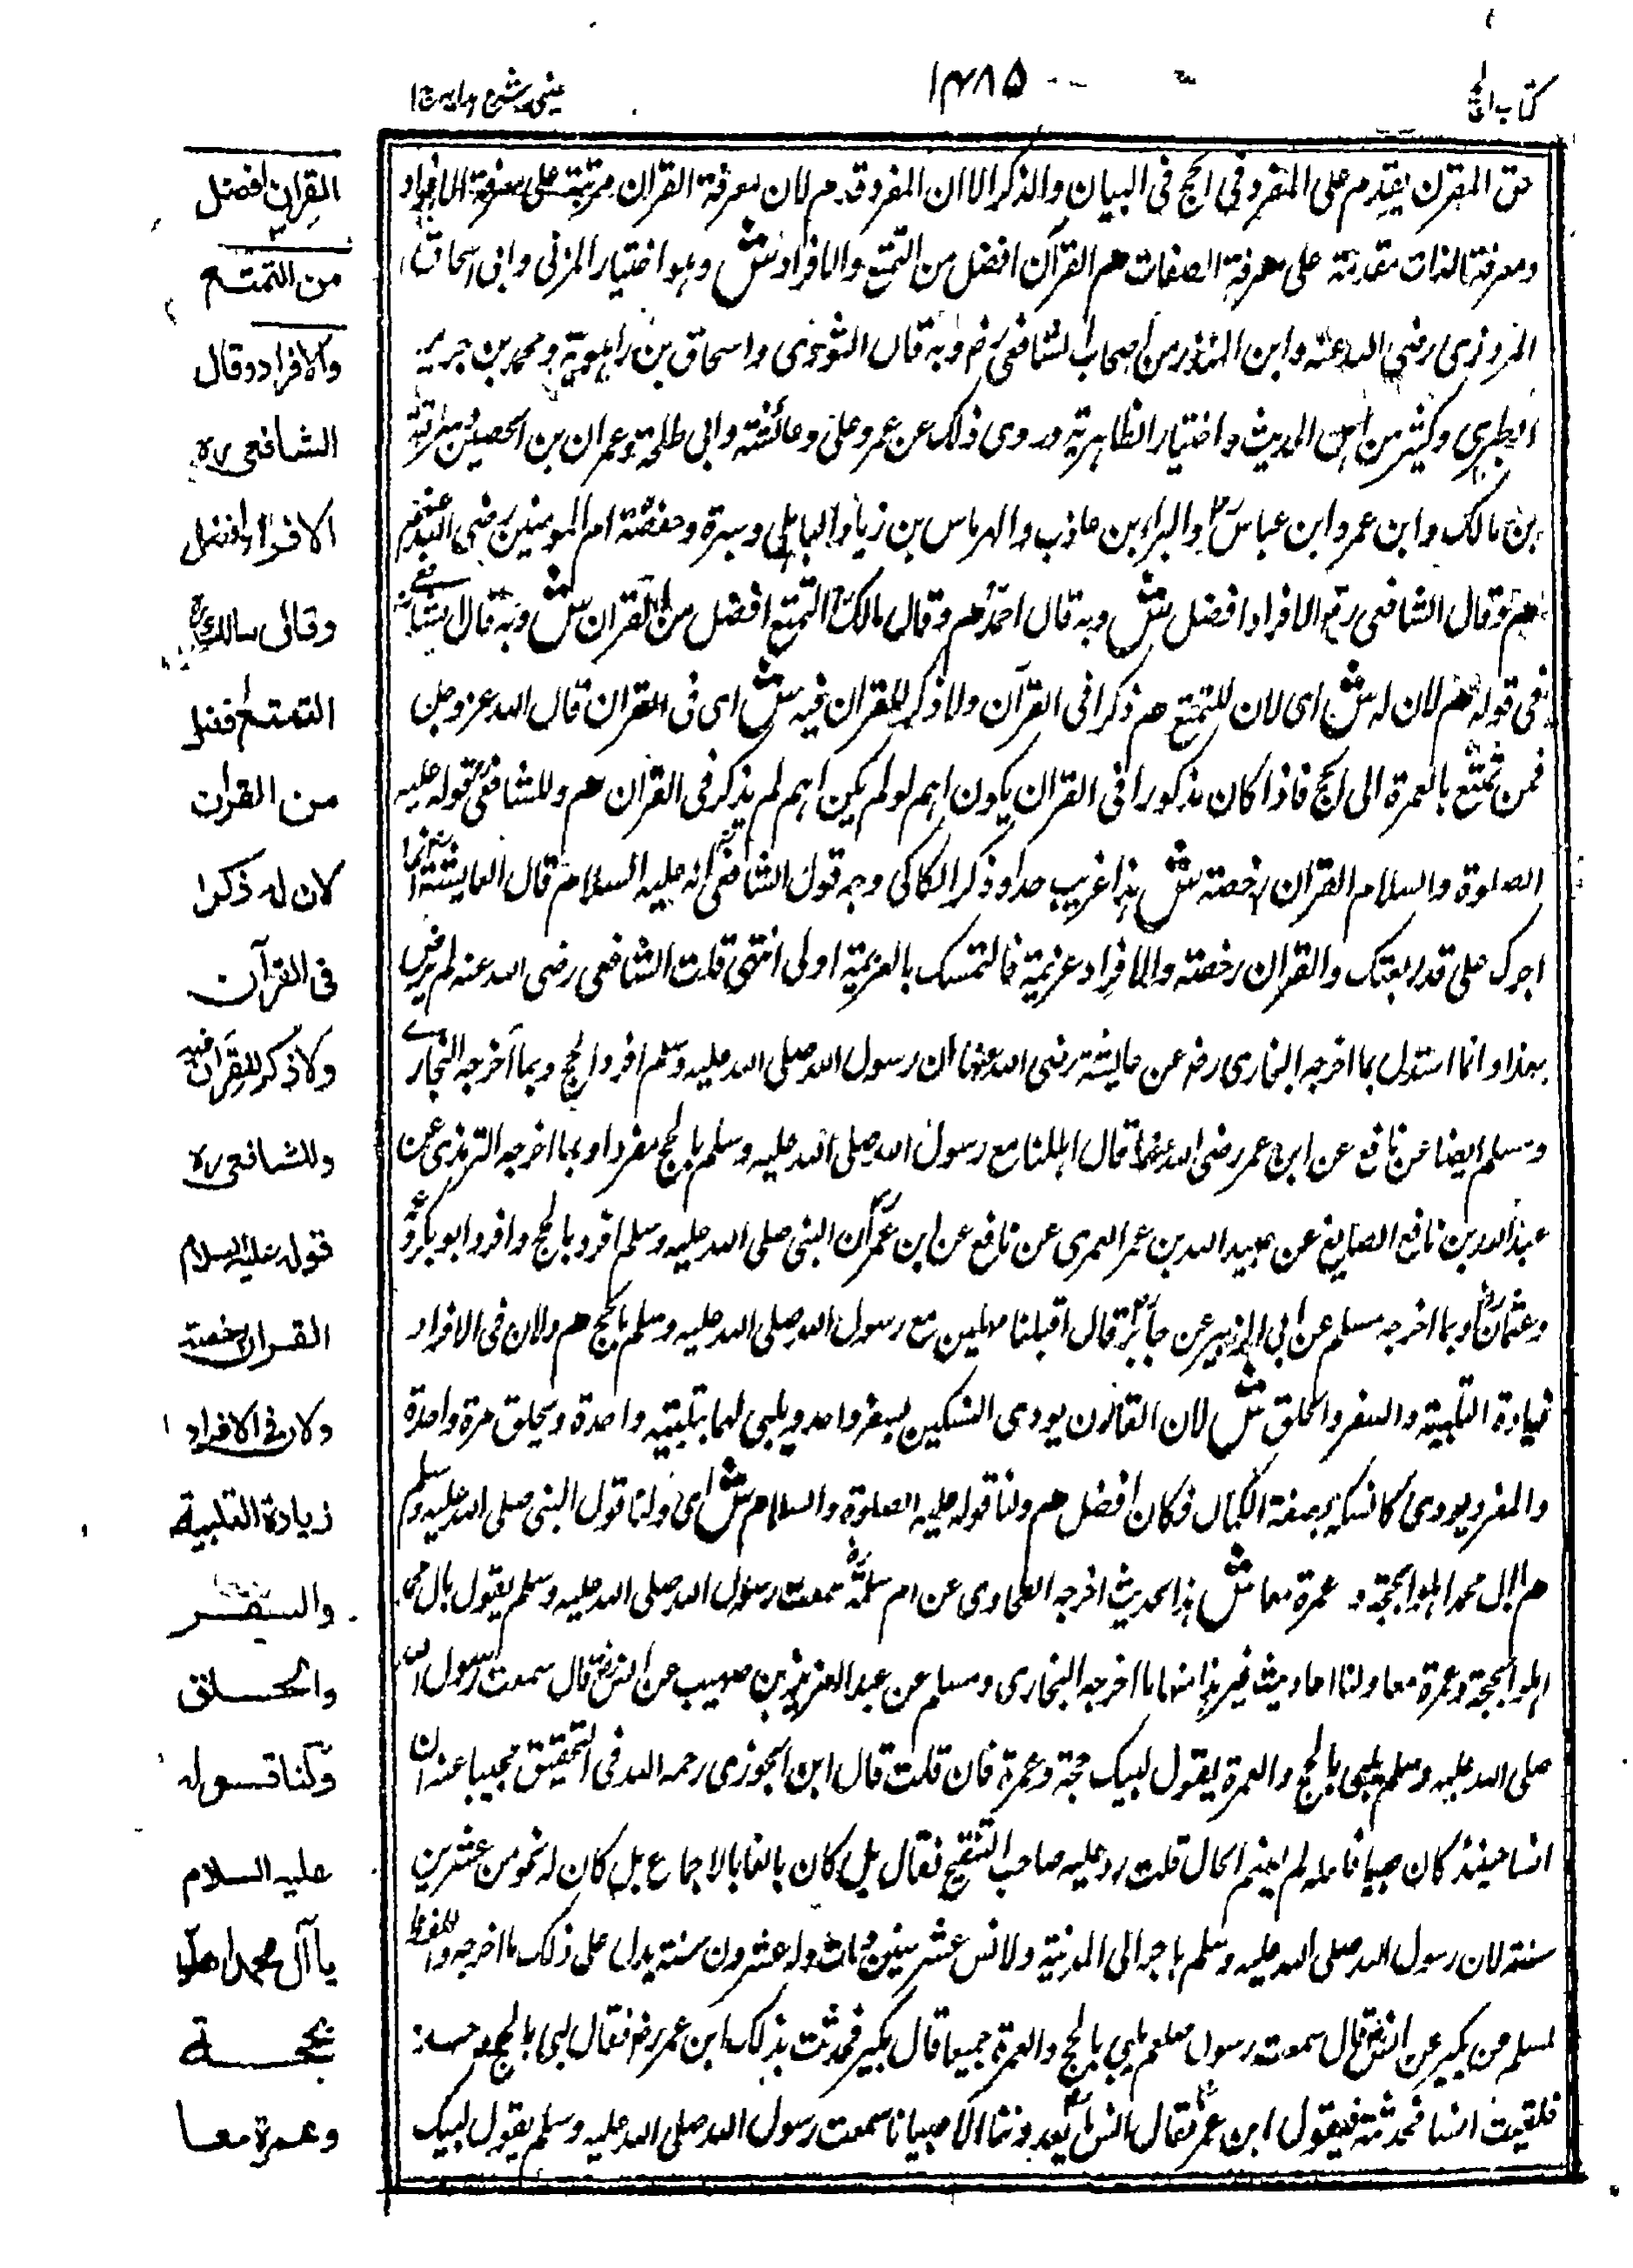 كتاب الحج
١٤٨٥
عينى شرح هدايه ج١
حق المقرن يقدم على المفرد فى الحج فى البيان والذكر الا ان المفرد قدم لان معرفة القران مرتبة على معرفة الافراد
ومعرفة الذات مقدمة على معرفة الصفات هم القران افضل من التمتع والافراد ش وهو اختيار المزنى وابى اسحاق
المروزى رضى الله عنه وابن المنذر من اصحاب الشافعى رض وبه قال الثورى واسحاق بن راهوية ومحمد بن جرير
الطبرى وكثير من اهل الحديث واختيار الظاهرية وروى ذلك عن عمر وعلى وعائشة وابى طلحة وعمران بن الحصين وسراقة
بن مالك وابن عمر وابن عباس والبراء بن عازب والهرماس بن زياد الباهلى وسبرة وحفصة ام المومنين رضى الله عنهم
هم وقال الشافعى رح الافراد افضل ش وبه قال احمد هم وقال مالك التمتع افضل من القران ش وبه قال الشافعى
فى قوله هم لان له ش اى لان للتمتع هم ذكرا فى القرآن ولا ذكر للقران فيه ش اى فى القران قال الله عز وجل
فمن تمتع بالعمرة الى الحج فاذا كان مذكورا فى القران يكون اهم لو لم يكن اهم لم يذكر فى القران هم وللشافعى قوله عليه
الصلوة والسلام القران رخصة ش هذا غريب جدا وذكر الكاكى وجه قول الشافعى انه عليه السلام قال لعايشة انما
اجرك على قدر تعبك والقران رخصة والافراد عزيمة فالتمسك بالعزيمة اولى انتهى قلت الشافعى رضى الله عنه لم يرض
بهذا وانما استدل بما اخرجه البخارى رض عن عايشة رضى الله عنها ان رسول الله صلى الله عليه وسلم افرد الحج وبما اخرجه البخارى
ومسلم ايضا عن نافع عن ابن عمر رضى الله عنهما قال اهللنا مع رسول الله صلى الله عليه وسلم بالحج مفردا وبما اخرجه الترمذى عن
عبد الله بن نافع الصايغ عن عبيد الله بن عمر العمرى عن نافع عن ابن عمر ان النبى صلى الله عليه وسلم افرد بالحج وافرد ابو بكر وعمر
وعثمان وبما اخرجه مسلم عن ابى الزبير عن جابر قال اقبلنا مهلين مع رسول الله صلى الله عليه وسلم بالحج هم ولان فى الافراد
زيادة التلبية والسفر والحلق ش لان القارن يودى النسكين بسفر واحد ويلبى لهما بتلبية واحدة ويحلق مرة واحدة
والمفرد يودى كل نسك بصفة الكمال فكان افضل هم ولنا قوله عليه الصلوة والسلام ش اى ولنا قول النبى صلى الله عليه وسلم
هم ال محمد اهلوا بحجة و عمرة معا ش هذا الحديث اخرجه الطحاوى عن ام سلمة سمعت رسول الله صلى الله عليه وسلم يقول يال محمد
اهلوا بحجة وعمرة معا ولنا احاديث غير هذا منها ما اخرجه البخارى ومسلم عن عبد العزيز بن صهيب عن انس قال سمعت رسول الله
صلى الله عليه وسلم يلبى بالحج والعمرة يقول لبيك حجة وعمرة فان قلت قال ابن الجوزى رحمه الله فى التحقيق مجيبا عنه ان
انسا حينئذ كان صبيا فلعله لم يفهم الحال قلت رد عليه صاحب التنقيح فقال بل كان بالغا بالاجماع بل كان له نحو من عشرين
سنة لان رسول الله صلى الله عليه وسلم هاجر الى المدنية ولانس عشر سنين ومات وله عشرون سنة يدل على ذلك ما اخرجه واللفظ
لمسلم عن بكير عن انس قال سمعت رسول صلعم يلبى بالحج والعمرة جميعا قال بكير فحدثت بذلك ابن عمر رض فقال لبى بالحج وحده
فلقيت انسا فحدثته فيقول ابن عمر فقال انس ما يعدوننا الا صبيانا سمعت رسول الله صلى الله عليه وسلم يقول لبيك
القران افضل
من التمتع
والافراد وقال
الشافعى ره
الافراد افضل
وقال مالك ره
التمتع افضل
من القران
لان له ذكرا
فى القرآن
ولا ذكر للقران فيه
وللشافعى ره
قوله عليه السلام
القران رخصة
ولان فى الافراد
زيادة التلبية
والسفر
والحلق
ولنا قوله
عليه السلام
يا آل محمد اهلوا
بحجة
وعمرة معا